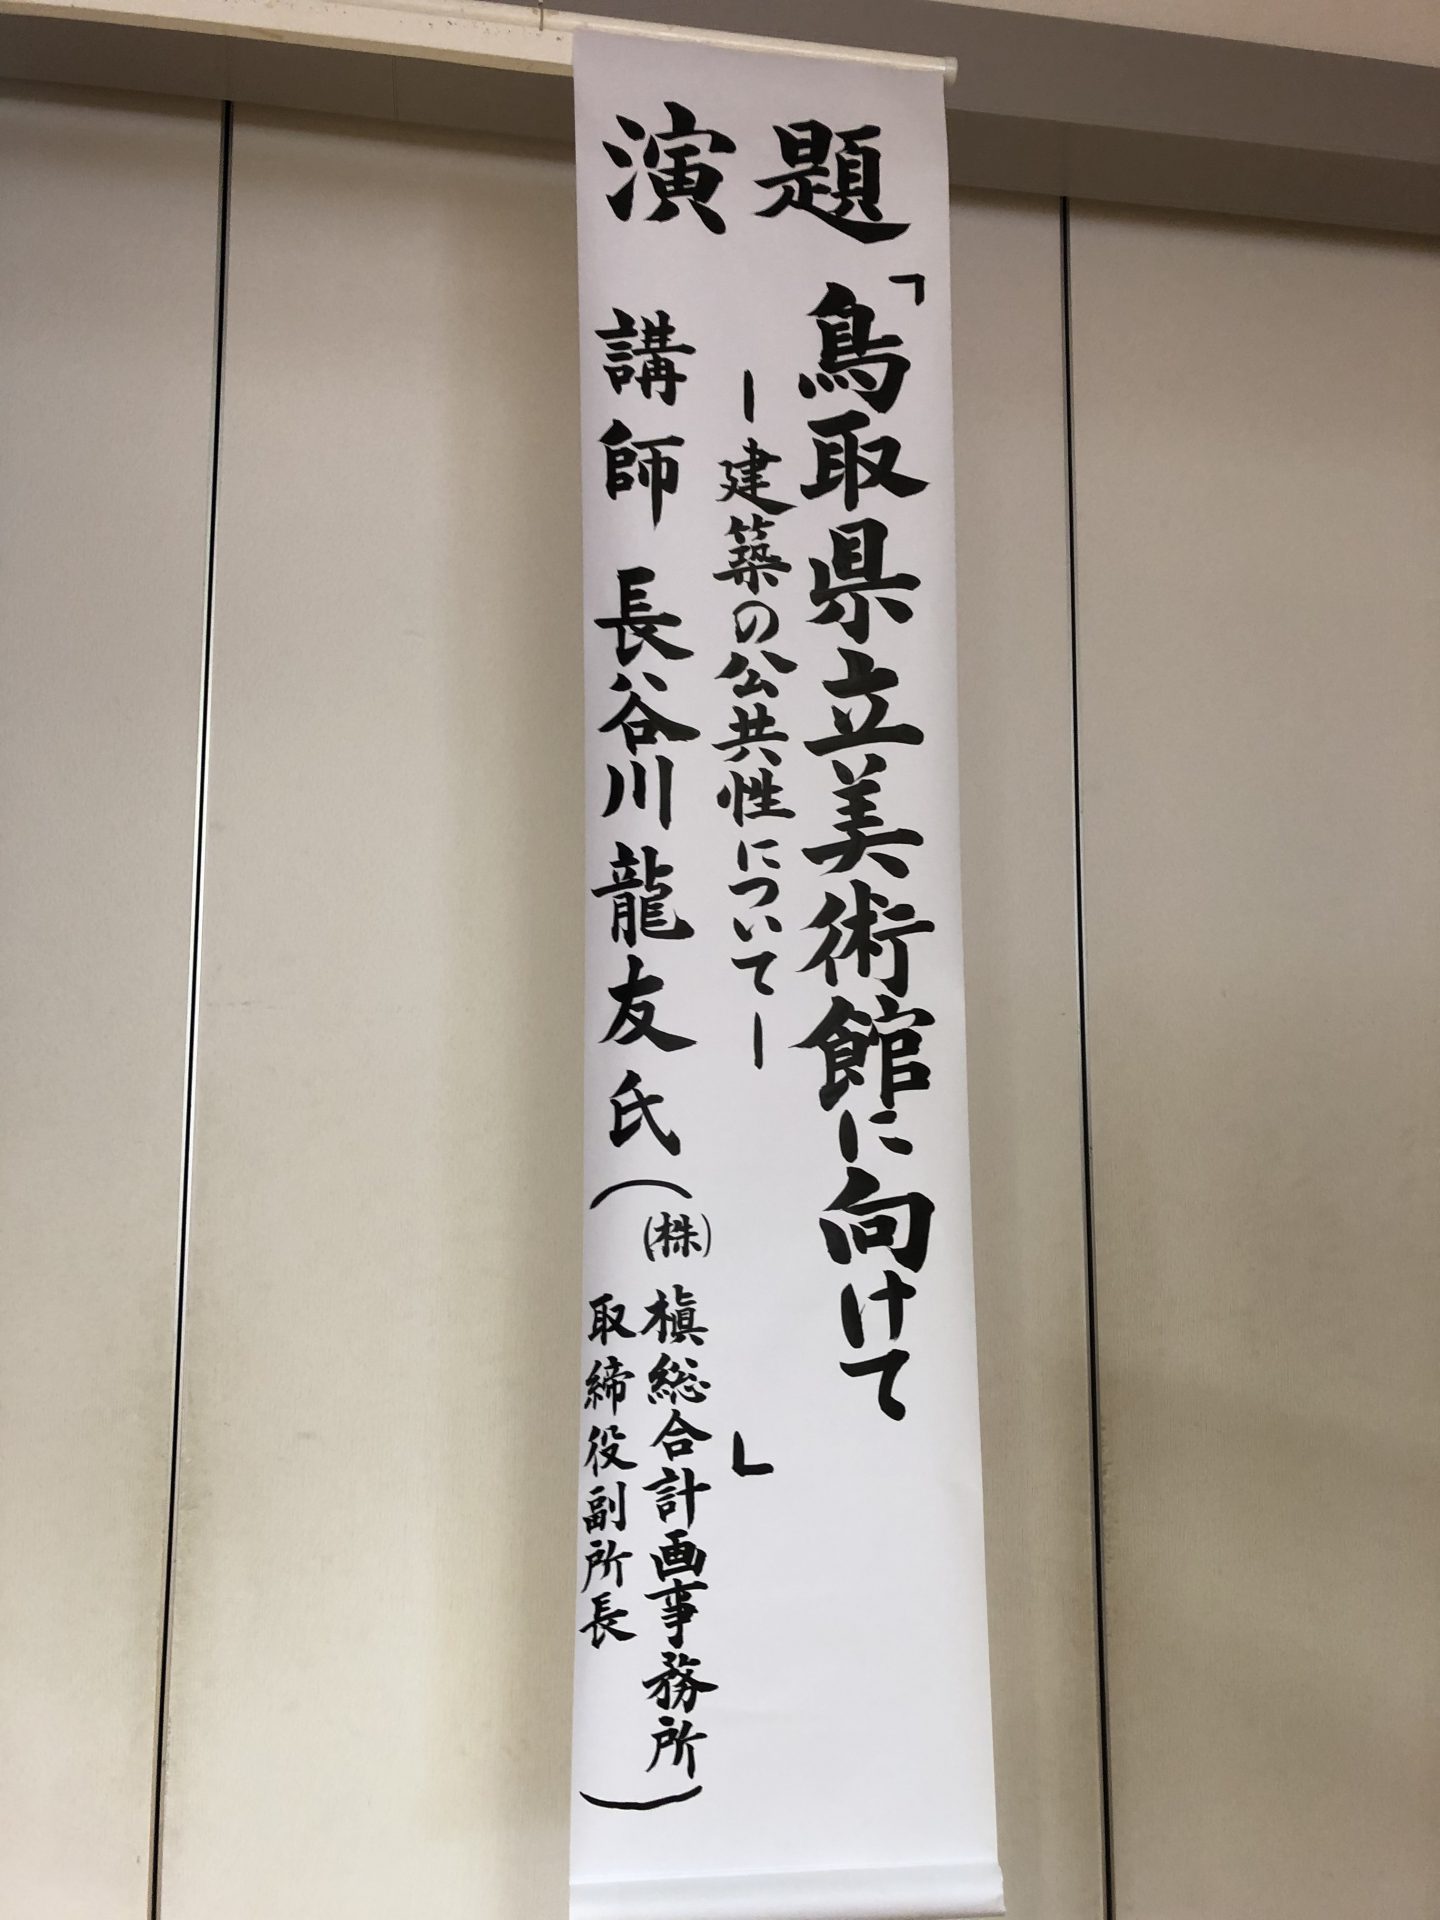 演題
「鳥取県立美術館に向けて
ー建築の公共性についてー」
講師 長谷川龍友氏(㈱槇総合計画事務所
取締役副所長)